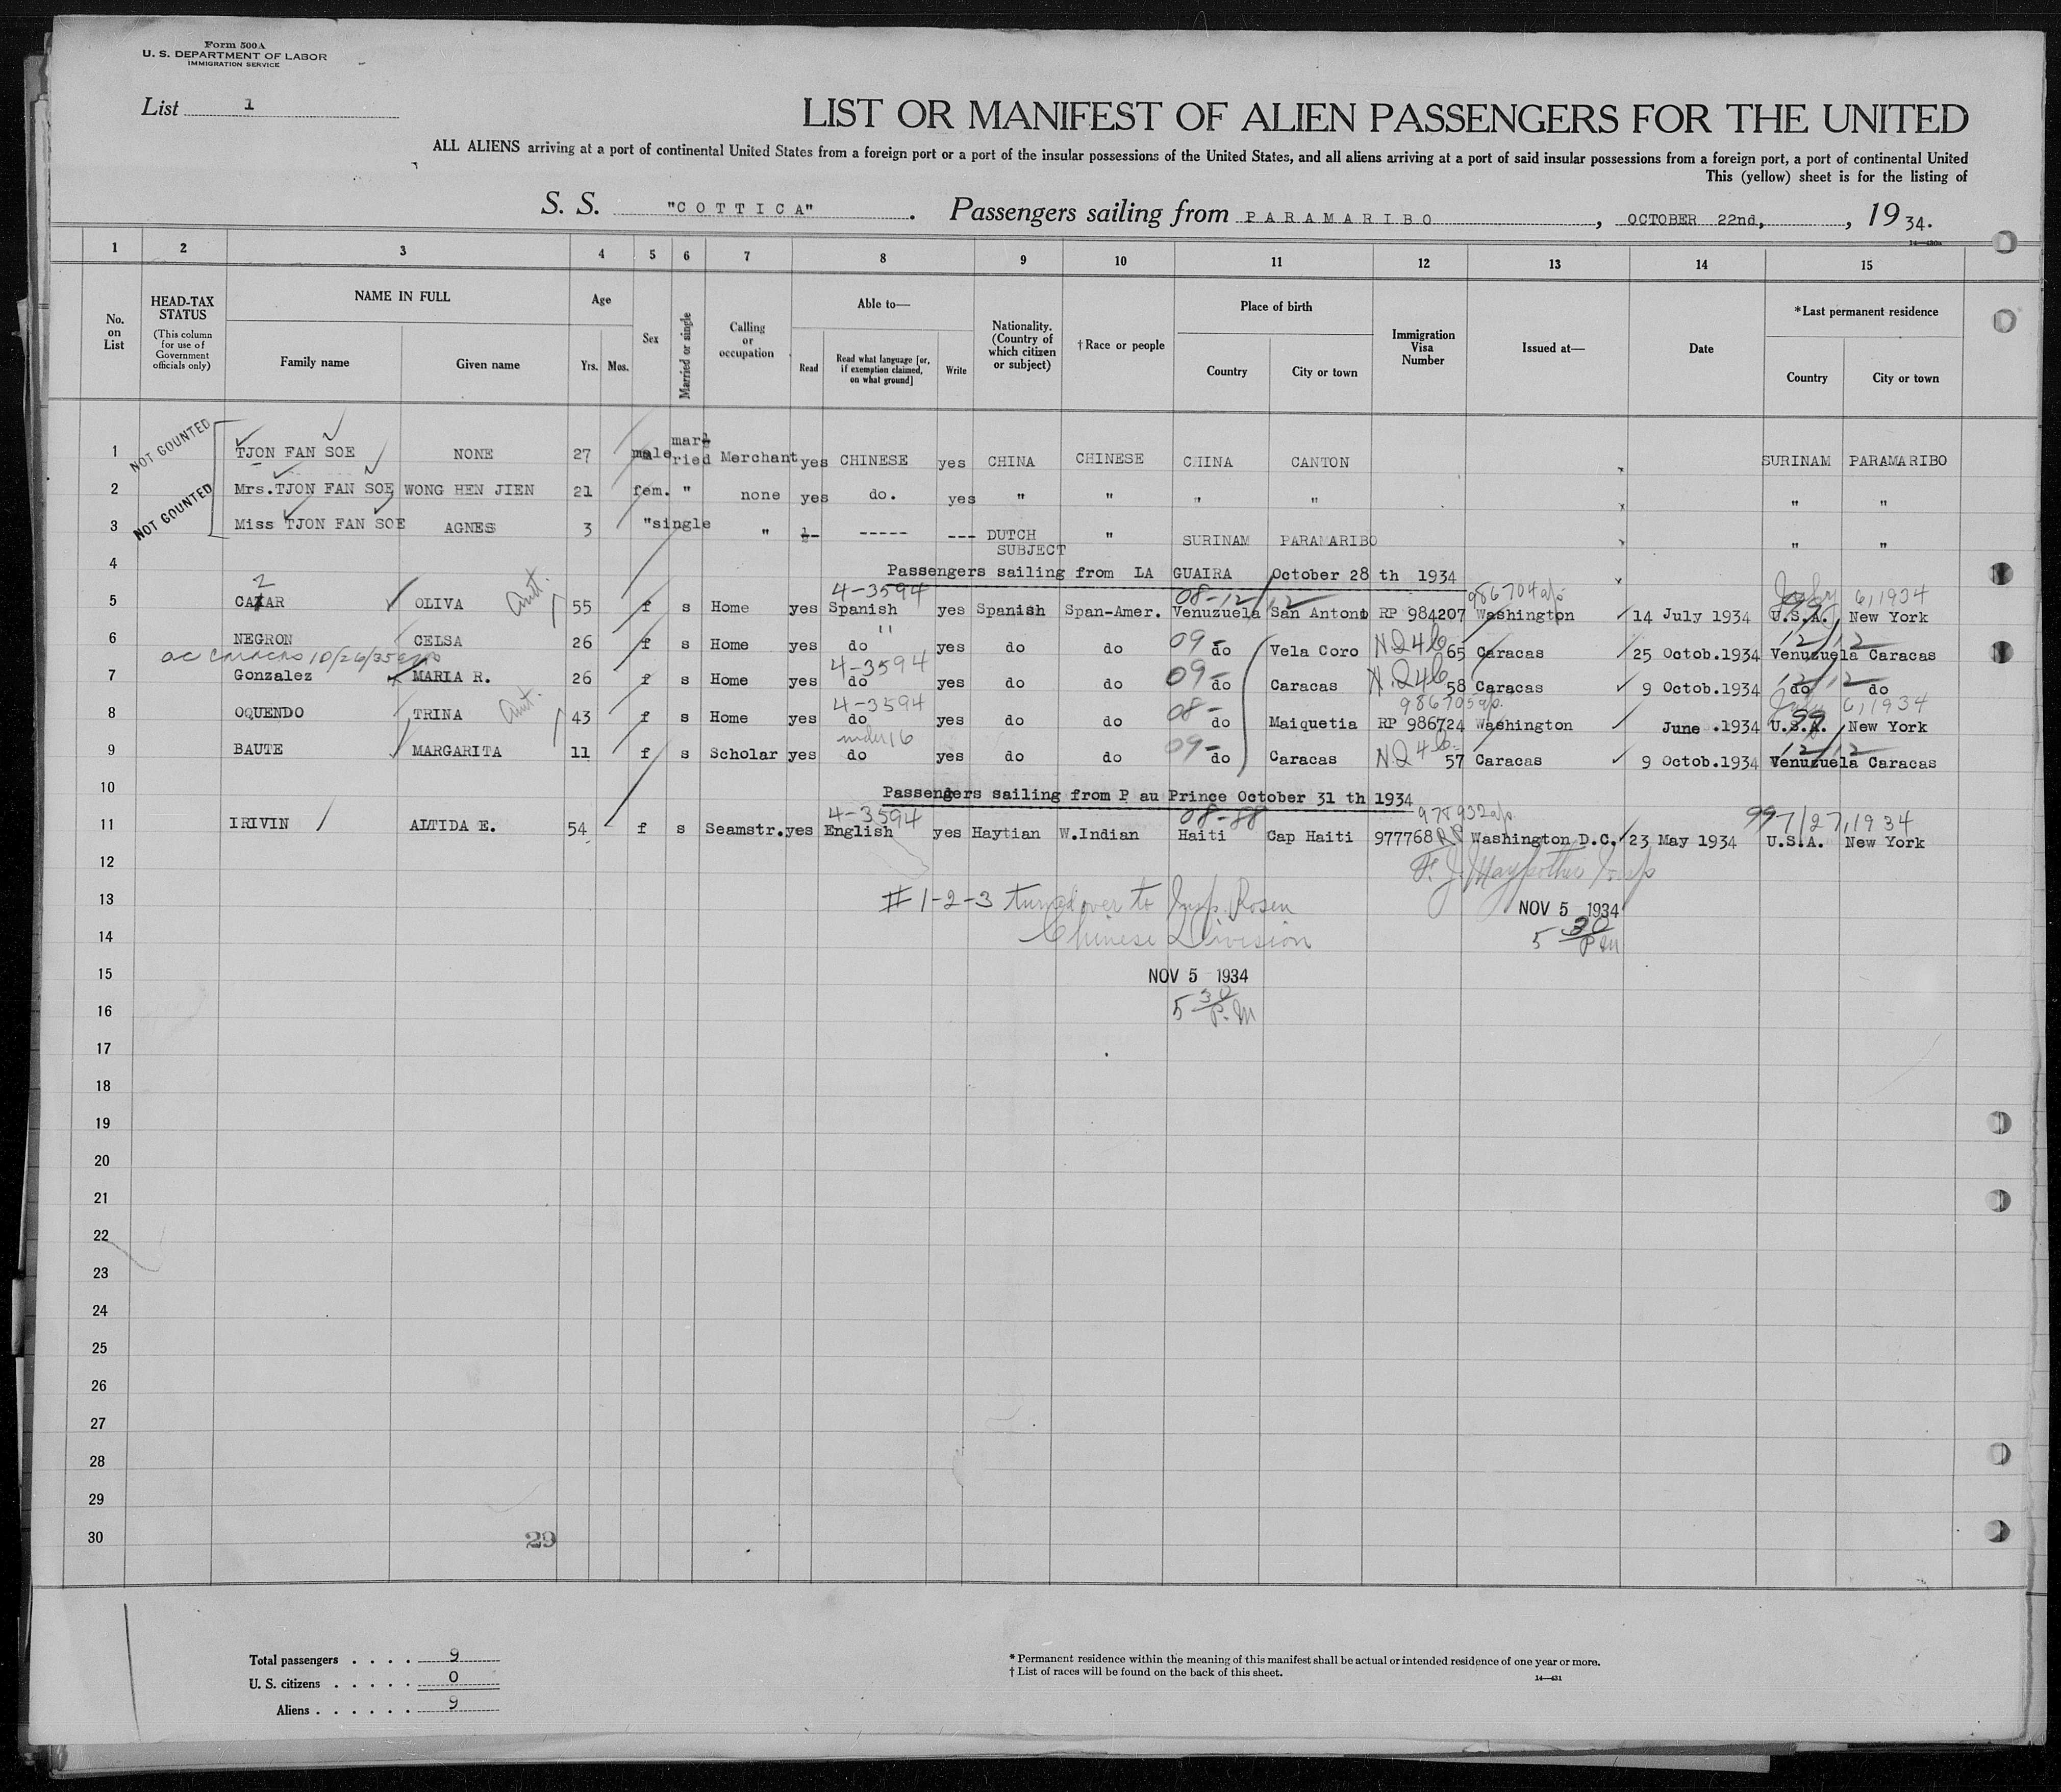 Form 500A
U. S. DEPARTMENT OF LABOR
IMMIGRATION SERVICE
List 1
LIST OR MANIFEST OF ALIEN PASSENGERS FOR THE UNITED
ALL ALIENS arriving at a port of continental United States from a foreign port or a port of the insular possessions of the United States, and all aliens arriving at a port of said insular possessions from a foreign port, a port of continental United
This (yellow) sheet is for the listing of
S. S. "COTTICA". Passengers sailing from PARAMARIBO, OCTOBER 22nd, , 19 34.
14—430a
1 2 3 4 5 6 7 8 9 10 11 12 13 14 15
No. on List
HEAD-TAX STATUS
(This column for use of Government officials only)
NAME IN FULL
Family name Given name
Age
Yrs. Mos.
Sex
Married or single
Calling or occupation
Able to—
Read Read what language [or, if exemption claimed, on what ground] Write
Nationality. (Country of which citizen or subject)
†Race or people
Place of birth
Country City or town
Immigration Visa Number
Issued at—
Date
*Last permanent residence
Country City or town
NOT COUNTED
1 TJON FAN SOE NONE 27 male married Merchant yes CHINESE yes CHINA CHINESE CHINA CANTON SURINAM PARAMARIBO
NOT COUNTED
2 Mrs. TJON FAN SOE WONG HEN JIEN 21 fem. " none yes do. yes " " " " " "
3 Miss TJON FAN SOE AGNES 3 " single " -- ----- --- DUTCH SUBJECT " SURINAM PARAMARIBO " "
4 Passengers sailing from LA GUAIRA October 28 th 1934
4-3594 08-12/12 986704 a/p July 6, 1934
5 OLIVA 55 f s Home yes Spanish yes Spanish Span-Amer. Venuzuela San Antono RP 984207 Washington 14 July 1934 U.S.A. New York
99
6 NEGRON CELSA 26 f s Home yes do " yes do do 09- do Vela Coro NQ4b 65 Caracas 25 Octob.1934 Venuzuela Caracas
12/12
4-3594
7 Gonzalez MARIA R. 26 f s Home yes do yes do do 09- do Caracas NQ4b 58 Caracas 9 Octob.1934 do do
12/12
4-3594 986705 a/p. July 6, 1934
8 OQUENDO TRINA 43 f s Home yes do yes do do 08- do Maiquetia RP 986724 Washington June .1934 U.S.A. New York
99
under 16
9 BAUTE MARGARITA 11 f s Scholar yes do yes do do 09- do Caracas NQ4b 57 Caracas 9 Octob.1934 Venuzuela Caracas
12/12
10 Passengers sailing from P au Prince October 31 th 1934
4-3594 08-88 978932 a/p 99 7/27, 1934
11 IRIVIN ALTIDA E. 54 f s Seamstr. yes English yes Haytian W.Indian Haiti Cap Haiti 977768 RP Washington D.C. 23 May 1934 U.S.A. New York
12
13 #1-2-3 turned over to Insp. Rosen NOV 5 1934
14 Chinese Division 5 30 P M
15 NOV 5 1934
16 5 30 P. M
17
18
19
20
21
22
23
24
25
26
27
28
29
30 29
Total passengers . . . . 9
U. S. citizens . . . . . 0
Aliens . . . . . . 9
* Permanent residence within the meaning of this manifest shall be actual or intended residence of one year or more.
† List of races will be found on the back of this sheet.
14—431